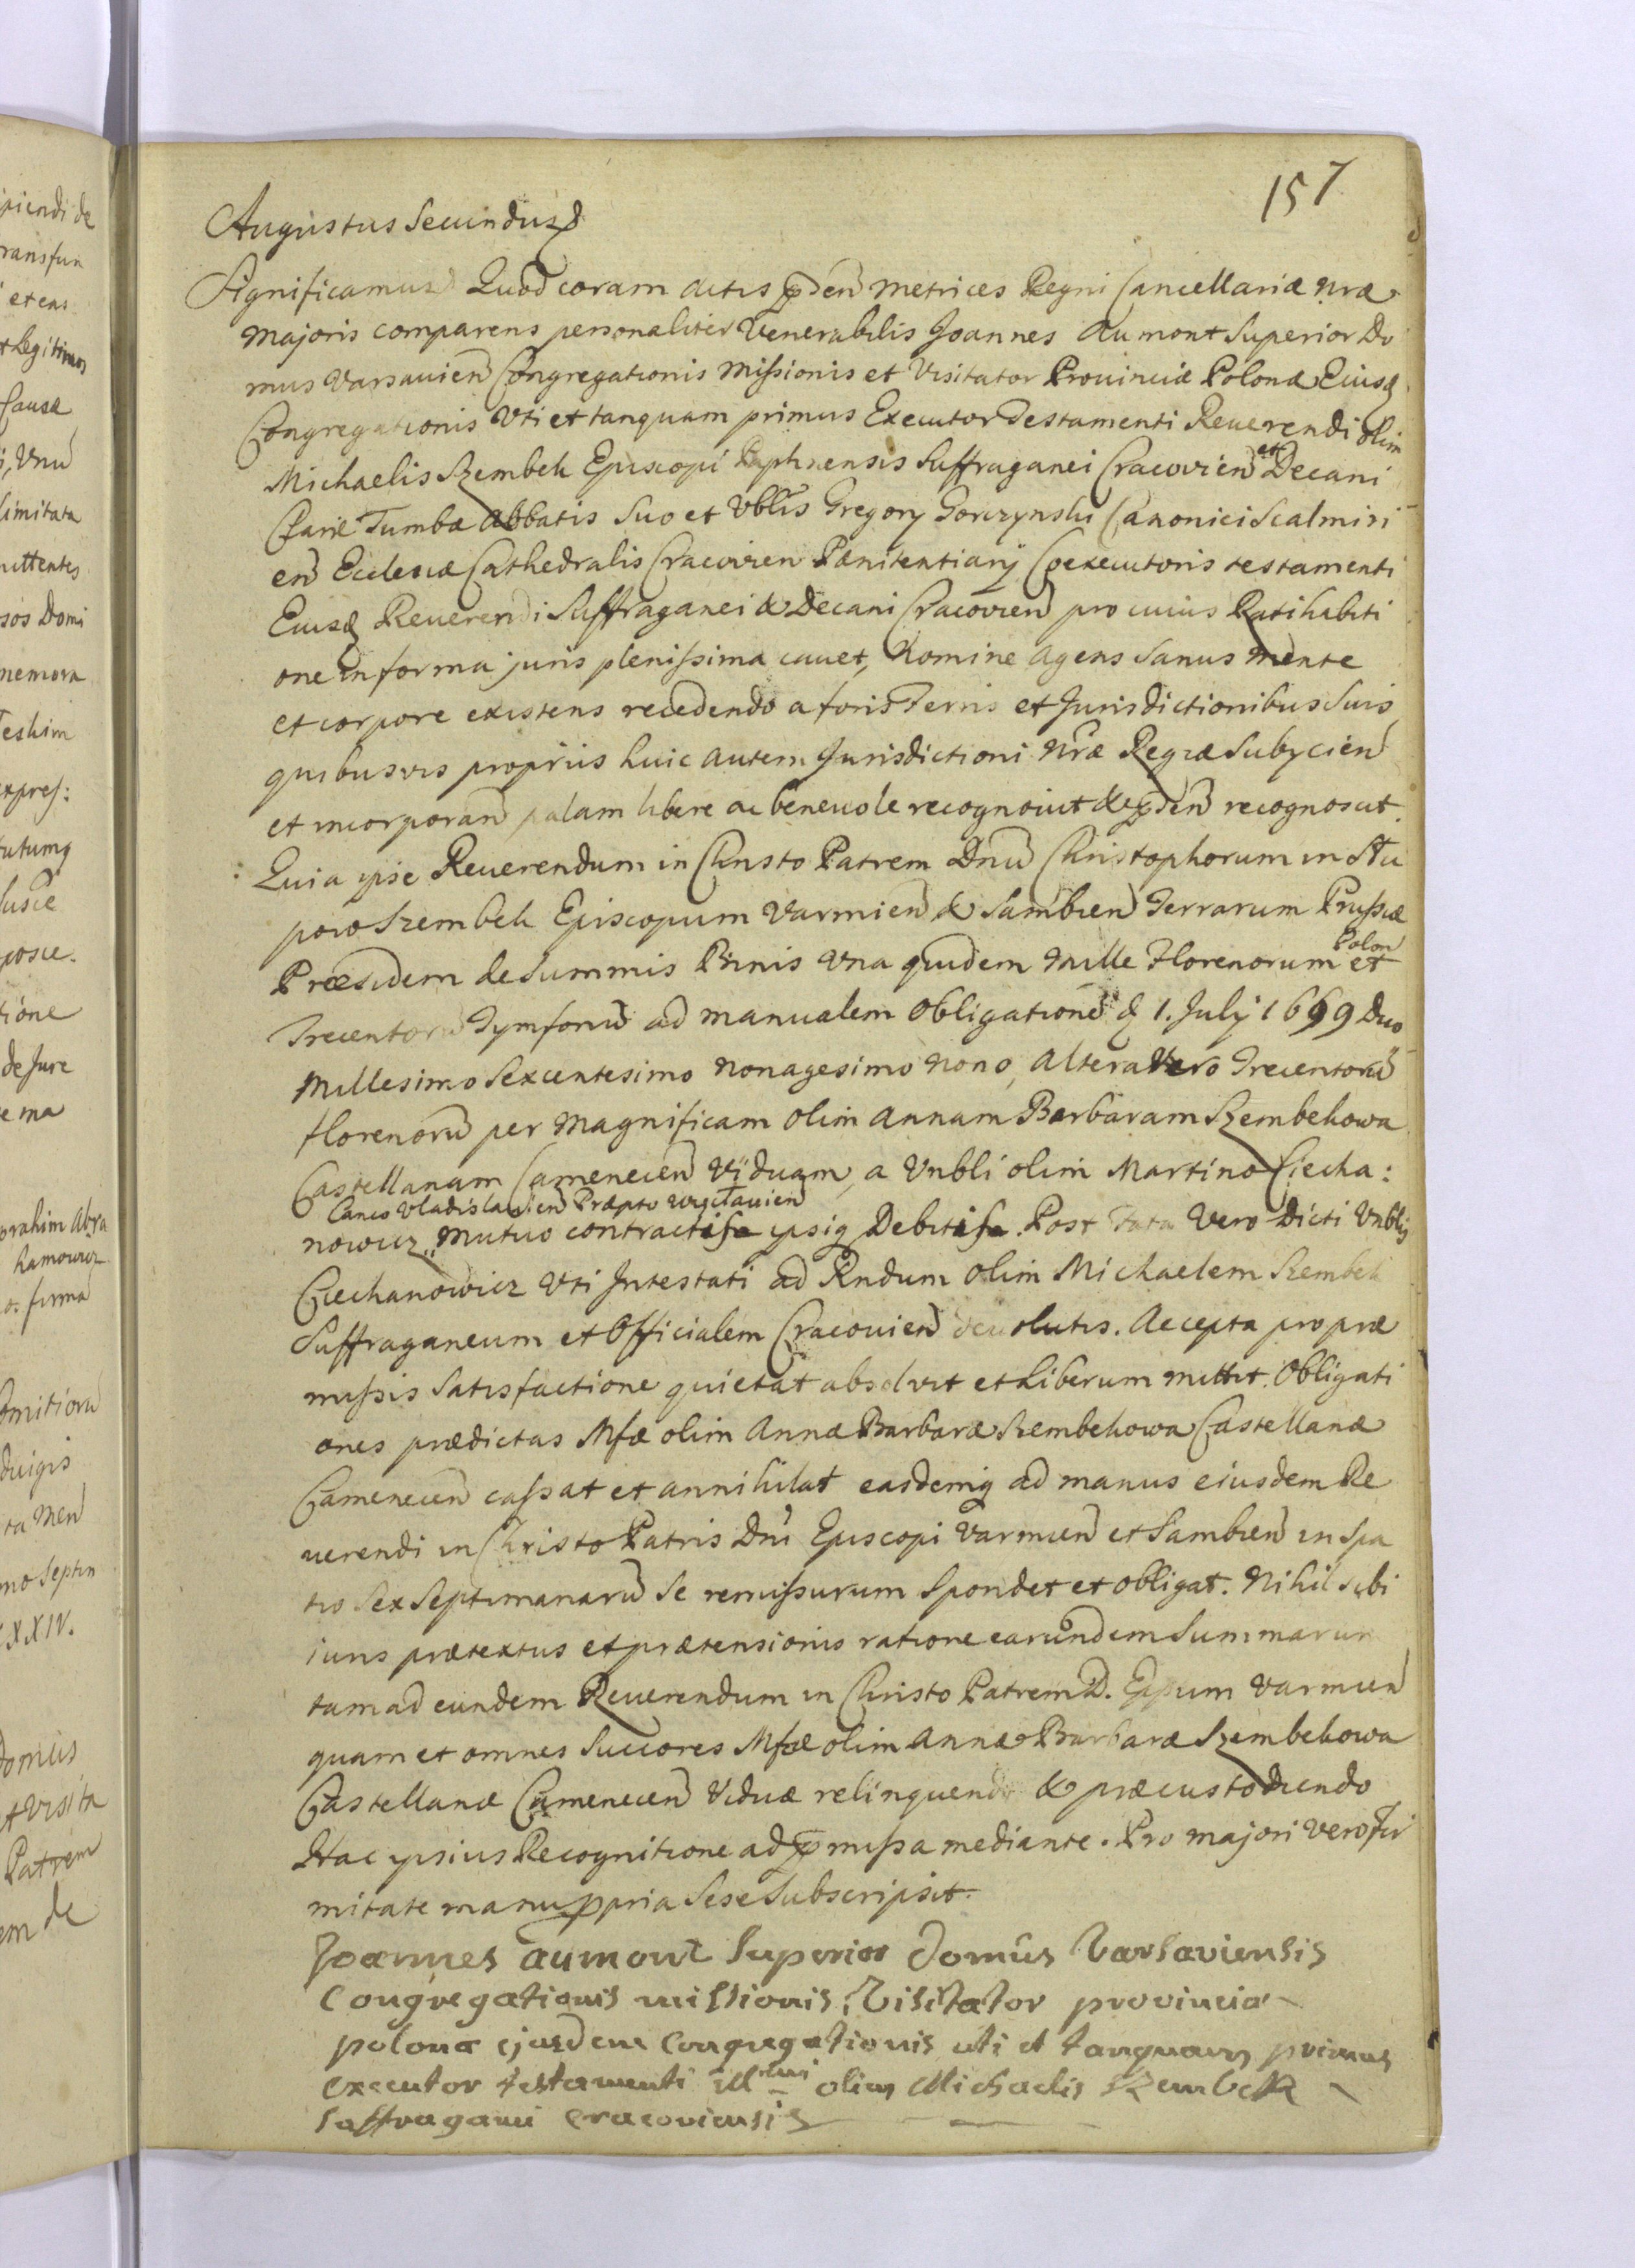 157
Augustus Secundus
Significamus Quod coram actis pnden Metrices Regni Cancellariæ nræ
Majoris comparens personaliter Venerabilis Joannes Aumont Superior Do
mus Varsavien Congregationis Missionis et Visitator Provinciæ Polonæ Eiusq
Congregationis Uti et tanquam primus Executor Testamenti Reuerendi olim
Michaelis Szembek Episcopi Paphnensis Suffraganei Cracovien et Decani
Claræ Tumbæ Abbatis Suo et Vblis Gregory Gorczynski Canonici Scalmiri
en Ecclesiæ Cathedralis Cracovien Pœnitentiarÿ Coexecutoris testamenti
Eiusd Reuerendi Suffraganei & Decani Cracovien pro cuius Ratihabiti
one in forma juris plenissima cauet, Nomine Agens Sanus mente
et corpore existens recedendo a foris Terris et Jurisdictionibus Suis
quibusvis propriis huic autem Jurisdictioni Nræ Regiæ Subÿcien
et incorporan palam libere ac beneuole recognovit & pnden recognoscit.
Quia ipse Reuerendum in Christo Patrem Dnu Christophorum in Slu
pow Szembek Episcopum Varmien & Sambien Terrarum Prussiæ
Præsidem de Summis Binis Una quidem Mille Florenorum Polon et
Trecentoru Tymfonu ad manualem Obligatione d 1. Julÿ 1699 Dno
Millesimo Sexcentesimo Nonagesimo Nono, Altera Vero Trecentoru
florenoru per Magnificam olim Annam Barbaram Szembekowa
Castellanam Camenecen Viduam, a Vnbli olim Martino Ciecha:
Canco Vladislavien Præpto
nowicz mutuo contractis ipsiq Debitis. Post Fata Vero Dicti Vnblis
Ciechanowicz Uti Intestati ad Rndum olim Michaelem Szembek
Suffraganeum et Officialem Cracovien devolutis. Accepta pro præ
missis Satisfactione quietat absolvit et Liberum mittit. Obligati
ones prædictas Mfæ olim Annæ Barbaræ Szembekowa Castellanæ
Camenecen cassat et annihilat easdemq ad manus eiusdem Re
uerendi in Christo Patris Dni Episcopi Varmien et Sambien in Spa
tio Sex Septimanaru Se remissurum Spondet et obligat. Nihil sibi
iuris prætextus et prætensionis ratione earundem Summarum
tam ad eundem Reuerendum in Christo Patrem D. Eppum Varmien
quam et omnes Succores Mfæ olim Annæ Barbaræ Szembekowa
Castellanæ Camenecen Viduæ relinquendo & præcustodiendo
Hac ipsius Recognitione ad pmissa mediante. Pro majori vero fir
mitate manu ppria Sese Subscripsit.
Joannes aumont Superior domûs Varsaviensis
Congregationis missionis, Visitator provinciæ
polonæ ejusdem congregationis uti et tanquam primus
executor testamenti Illmi olim Michaelis Szembek
Suffraganei cracoviensis